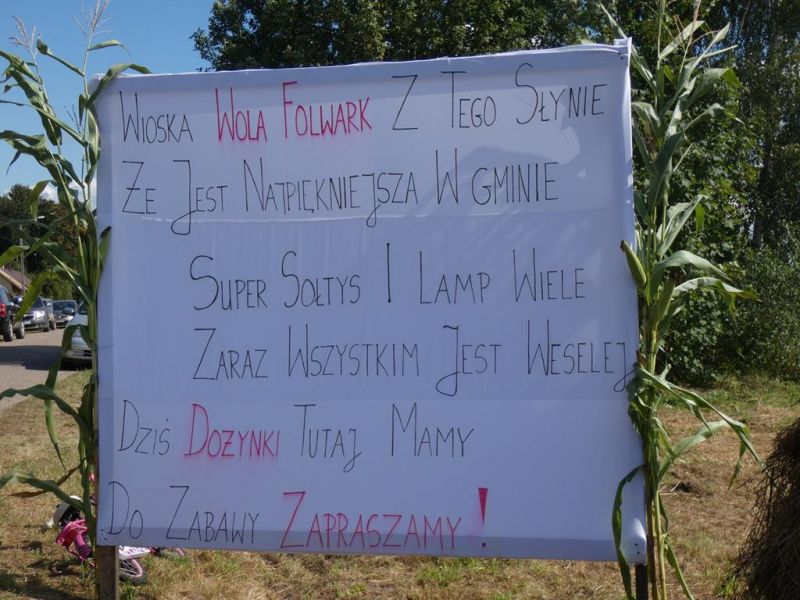 Wioska Wola Folwark Z Tego Słynie
Że Jest Najpiękniejsza W Gminie
Super Sołtys I Lamp Wiele
Zaraz Wszystkim Jest Weselej
Dziś Dożynki Tutaj Mamy
Do Zabawy Zapraszamy!